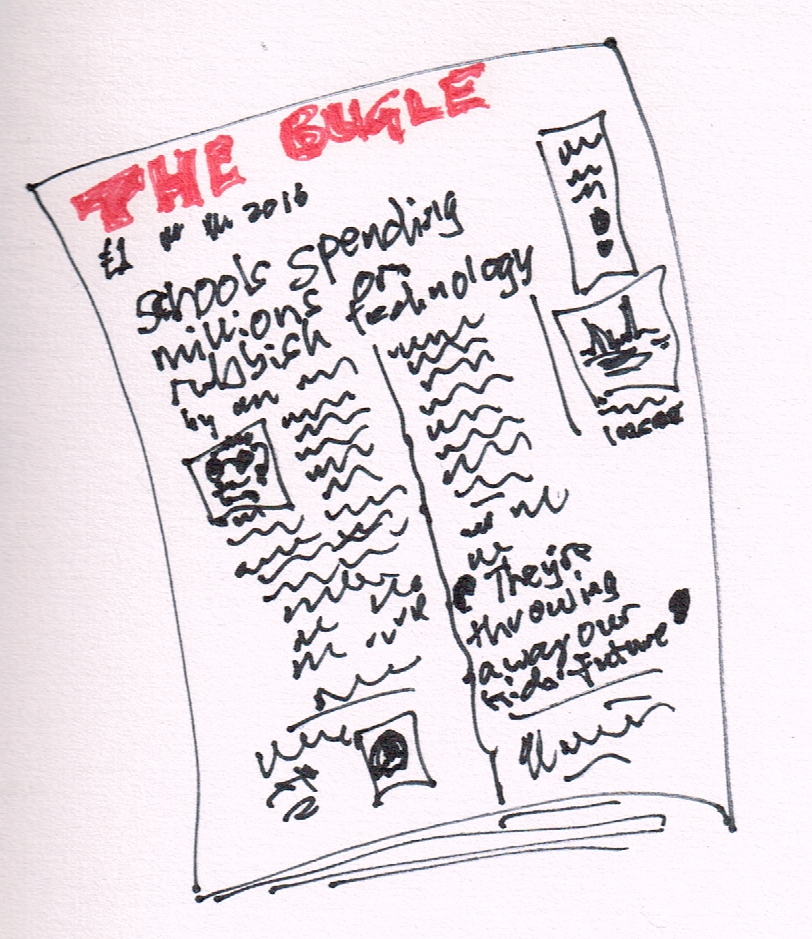 THE BUGLE
£1
2016
Schools spending
millions on
rubbish technology
by an
They're
throwing
away our
kids' future